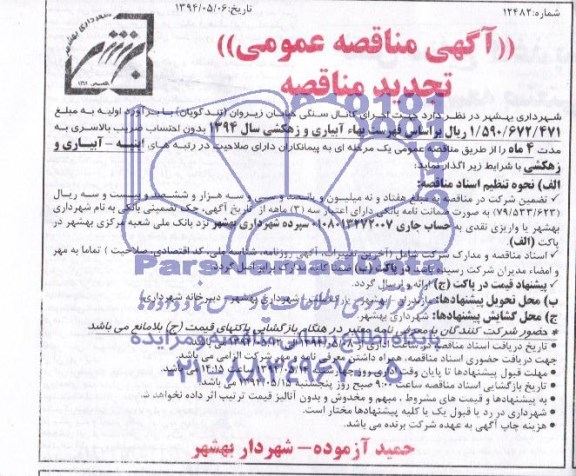 شماره: ۱۲۴۸۲
تاریخ: ۱۳۹۴/۰۵/۰۶
شهرداری بهشهر
((آگهی مناقصه عمومی))
تجدید مناقصه
شهرداری بهشهر در نظر دارد جهت اجرای کانال سنگی خیابان زیروان (تندگویان) با برآورد اولیه به مبلغ
۱/۵۹۰/۶۷۲/۴۷۱ ریال براساس فهرست بهاء آبیاری و زهکشی سال ۱۳۹۴ بدون احتساب ضریب بالاسری به
مدت ۴ ماه را از طریق مناقصه عمومی یک مرحله ای به پیمانکاران دارای صلاحیت در رتبه های ابنیه - آبیاری و
زهکشی با شرایط زیر واگذار نماید:
الف) نحوه تنظیم اسناد مناقصه:
تضمین شرکت در مناقصه به مبلغ هفتاد و نه میلیون و پانصد و سی و سه هزار و ششصد و بیست و سه ریال
(۷۹/۵۳۳/۶۲۳) به صورت ضمانت نامه بانکی دارای اعتبار سه (۳) ماهه از تاریخ آگهی، چک تضمینی بانکی به نام شهرداری
بهشهر یا واریزی نقدی به حساب جاری ۰۱۰۸۰۱۳۲۷۲۰۰۷ سپرده شهرداری بهشهر نزد بانک ملی شعبه مرکزی بهشهر در
پاکت (الف).
اسناد مناقصه و مدارک شرکت شامل (آخرین تغییرات، آگهی روزنامه، شناسه ملی، کد اقتصادی، صلاحیت) تماما به مهر
و امضاء مدیران شرکت رسیده باشد در پاکت (ب)
پیشنهاد قیمت در پاکت (ج) ارائه و ارسال گردد.
ب) محل تحویل پیشنهادها: مازندران، بهشهر، شهرداری بهشهر - دبیرخانه شهرداری
ج) محل گشایش پیشنهادها: شهرداری بهشهر.
* حضور شرکت کنندگان با معرفی نامه معتبر در هنگام بازگشایی پاکتهای قیمت (ج) بلامانع می باشد
تاریخ دریافت اسناد مناقصه از ساعت اداری
جهت دریافت حضوری اسناد مناقصه، همراه داشتن معرفی نامه و مهر شرکت الزامی می باشد.
مهلت قبول پیشنهادها تا پایان وقت اداری ساعت ۱۴:۱۵ می باشد.
تاریخ بازگشایی اسناد مناقصه ساعت ۹:۰۰ صبح روز پنجشنبه ۱۳۹۴/۰۵/۱۵ می باشد.
به پیشنهادها و قیمت های مشروط، مبهم و مخدوش و بدون آنالیز قیمت ترتیب اثر داده نخواهد شد.
شهرداری در رد یا قبول یک یا کلیه پیشنهادها مختار است.
هزینه چاپ آگهی به عهده شرکت برنده می باشد.
حمید آزموده - شهردار بهشهر
ParsNamadData
پایگاه اطلاع رسانی مناقصه و مزایده
۰۲۱-۸۸۳۴۹۶۷۰-۵